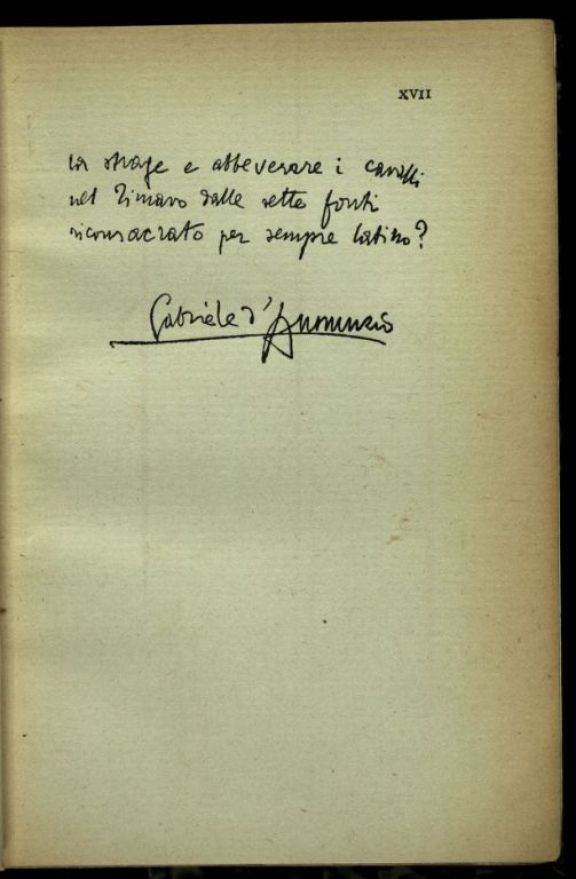 XVII
la strage e abbeverare i cavalli
nel Timavo dalle sette fonti
riconsacrato per sempre latino?
Gabriele d'Annunzio